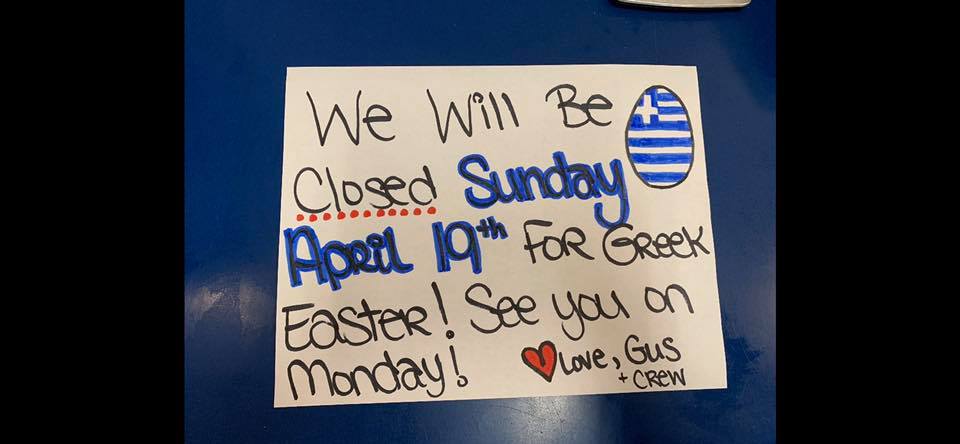 We Will Be
Closed Sunday
April 19th For Greek
Easter! See you on
Monday! Love, Gus
+ Crew